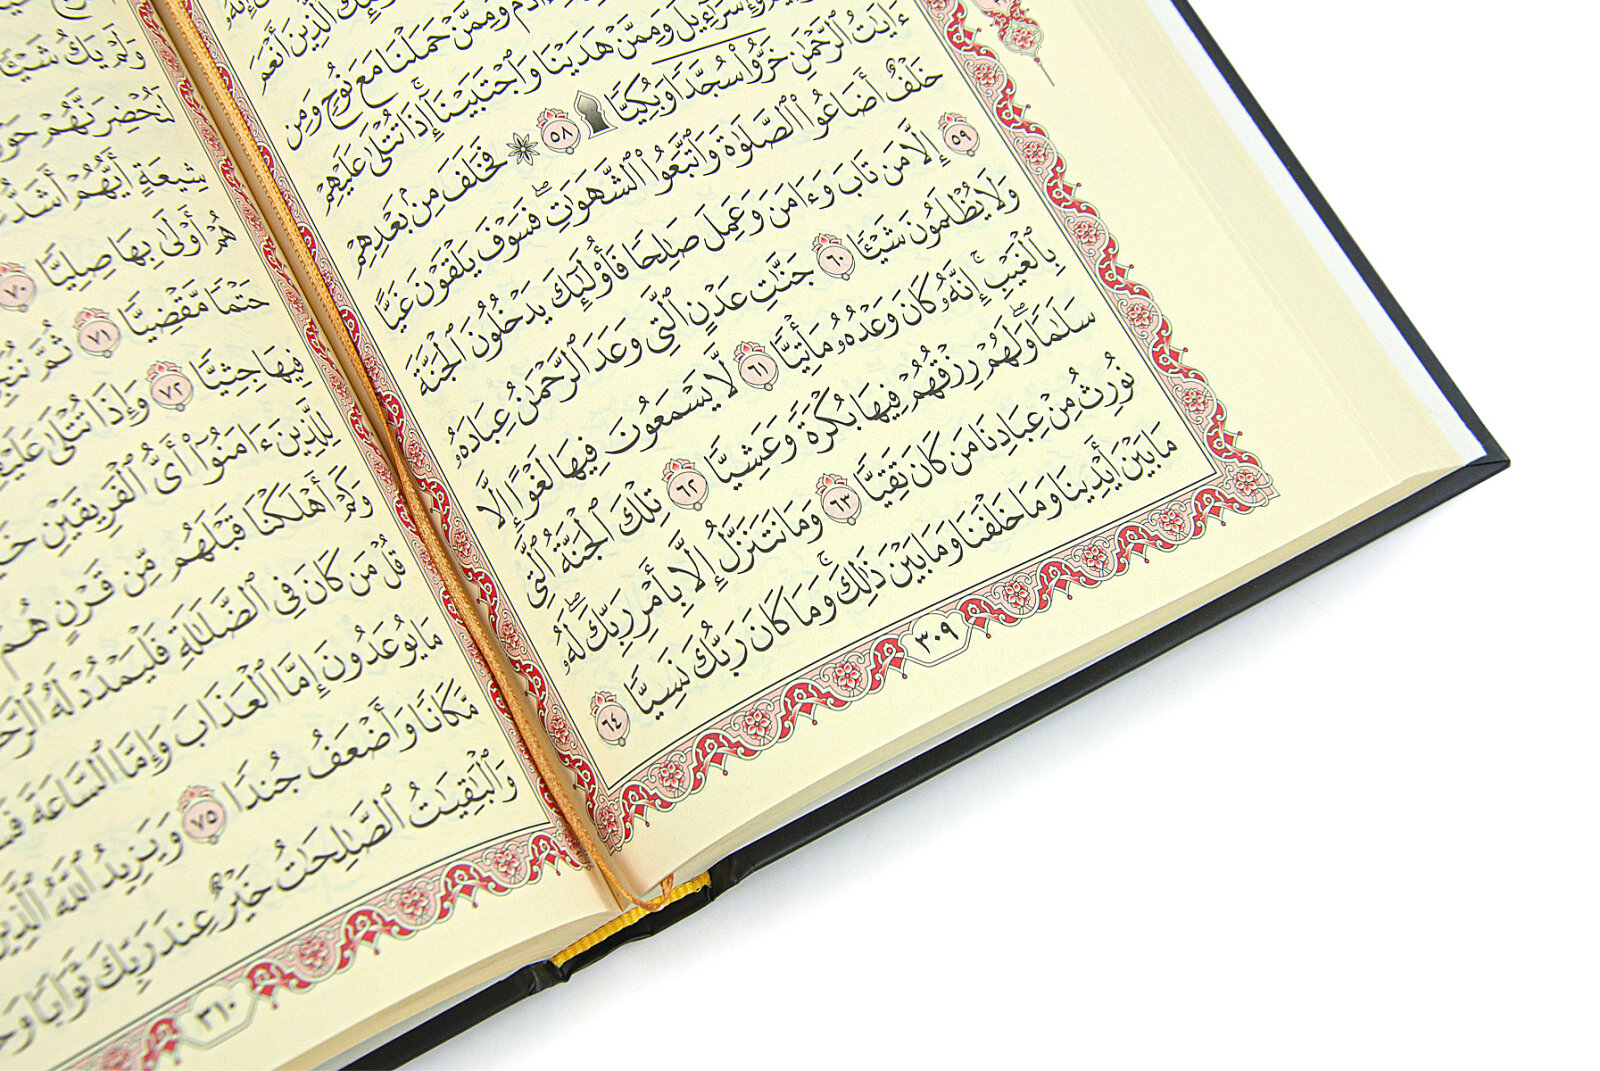 ٱلَّذِينَ أَنْعَمَ
ءَادَمَ وَمِمَّنْ حَمَلْنَا مَعَ نُوحٍ وَمِن
وَإِسْرَٰٓءِيلَ وَمِمَّنْ هَدَيْنَا وَٱجْتَبَيْنَآ إِذَا تُتْلَىٰ عَلَيْهِمْ
ءَايَـٰتُ ٱلرَّحْمَـٰنِ خَرُّوا۟ سُجَّدًا وَبُكِيًّا ۩ ٥٨ ۞ فَخَلَفَ مِنۢ بَعْدِهِمْ
خَلْفٌ أَضَاعُوا۟ ٱلصَّلَوٰةَ وَٱتَّبَعُوا۟ ٱلشَّهَوَٰتِ ۖ فَسَوْفَ يَلْقَوْنَ غَيًّا
٥٩ إِلَّا مَن تَابَ وَءَامَنَ وَعَمِلَ صَـٰلِحًا فَأُو۟لَـٰٓئِكَ يَدْخُلُونَ ٱلْجَنَّةَ
وَلَا يُظْلَمُونَ شَيْـًٔا ٦٠ جَنَّـٰتِ عَدْنٍ ٱلَّتِى وَعَدَ ٱلرَّحْمَـٰنُ عِبَادَهُۥ
بِٱلْغَيْبِ ۚ إِنَّهُۥ كَانَ وَعْدُهُۥ مَأْتِيًّا ٦١ لَّا يَسْمَعُونَ فِيهَا لَغْوًا إِلَّا
سَلَـٰمًا ۖ وَلَهُمْ رِزْقُهُمْ فِيهَا بُكْرَةً وَعَشِيًّا ٦٢ تِلْكَ ٱلْجَنَّةُ ٱلَّتِى
نُورِثُ مِنْ عِبَادِنَا مَن كَانَ تَقِيًّا ٦٣ وَمَا نَتَنَزَّلُ إِلَّا بِأَمْرِ رَبِّكَ ۖ لَهُۥ
مَا بَيْنَ أَيْدِينَا وَمَا خَلْفَنَا وَمَا بَيْنَ ذَٰلِكَ ۚ وَمَا كَانَ رَبُّكَ نَسِيًّا ٦٤
٣٠٩
وَلَمْ يَكُ شَيْـًٔا
لَنُحْضِرَنَّهُمْ
شِيعَةٍ أَيُّهُمْ أَشَدُّ
هُمْ أَوْلَىٰ بِهَا صِلِيًّا ٧٠
حَتْمًا مَّقْضِيًّا ٧١ ثُمَّ
فِيهَا جِثِيًّا ٧٢ وَإِذَا تُتْلَىٰ
لِلَّذِينَ ءَامَنُوٓا۟ أَىُّ ٱلْفَرِيقَيْنِ
وَكَمْ أَهْلَكْنَا قَبْلَهُم مِّن قَرْنٍ هُمْ
قُلْ مَن كَانَ فِى ٱلضَّلَـٰلَةِ فَلْيَمْدُدْ لَهُ
مَا يُوعَدُونَ إِمَّا ٱلْعَذَابَ وَإِمَّا ٱلسَّاعَةَ
مَّكَانًا وَأَضْعَفُ جُندًا ٧٥ وَيَزِيدُ ٱللَّهُ ٱلَّذِينَ
وَٱلْبَـٰقِيَـٰتُ ٱلصَّـٰلِحَـٰتُ خَيْرٌ عِندَ رَبِّكَ ثَوَابًا
٣١٠